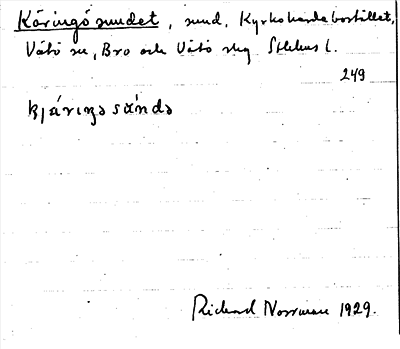 Käringösundet, sund, Kyrkoherdebostället,
Vätö sn, Bro och Vätö skg Sthlms l.
249
kjäriŋəsúndə
Richard Norrman 1929.